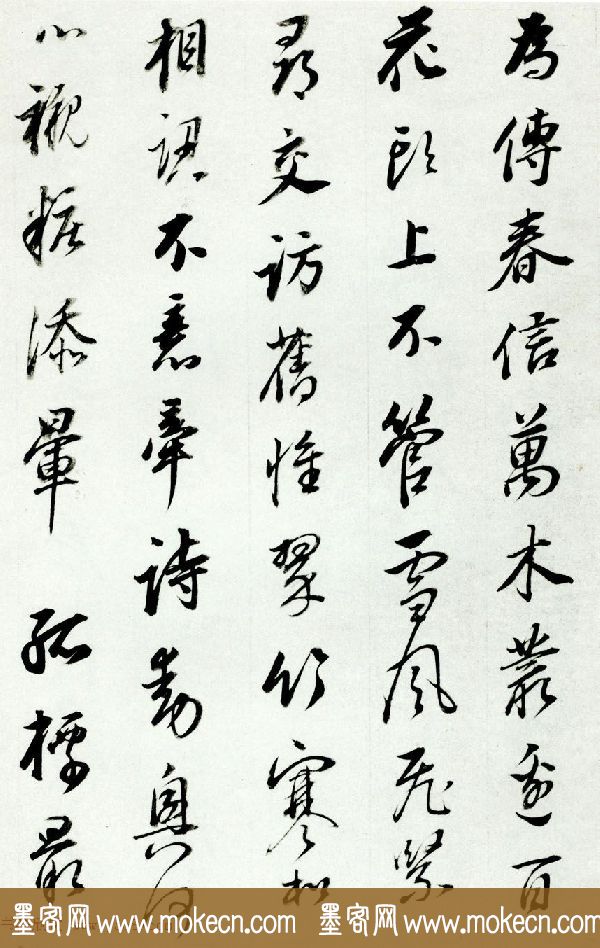 為傳春信萬木叢邊百
花頭上不管雪風飛緊
尋交訪舊惟翠竹寒松
相認不意牽詩動興何
心襯粧添暈 孤標最
墨客网 www.mokecn.com 墨客网 www.mokecn.com